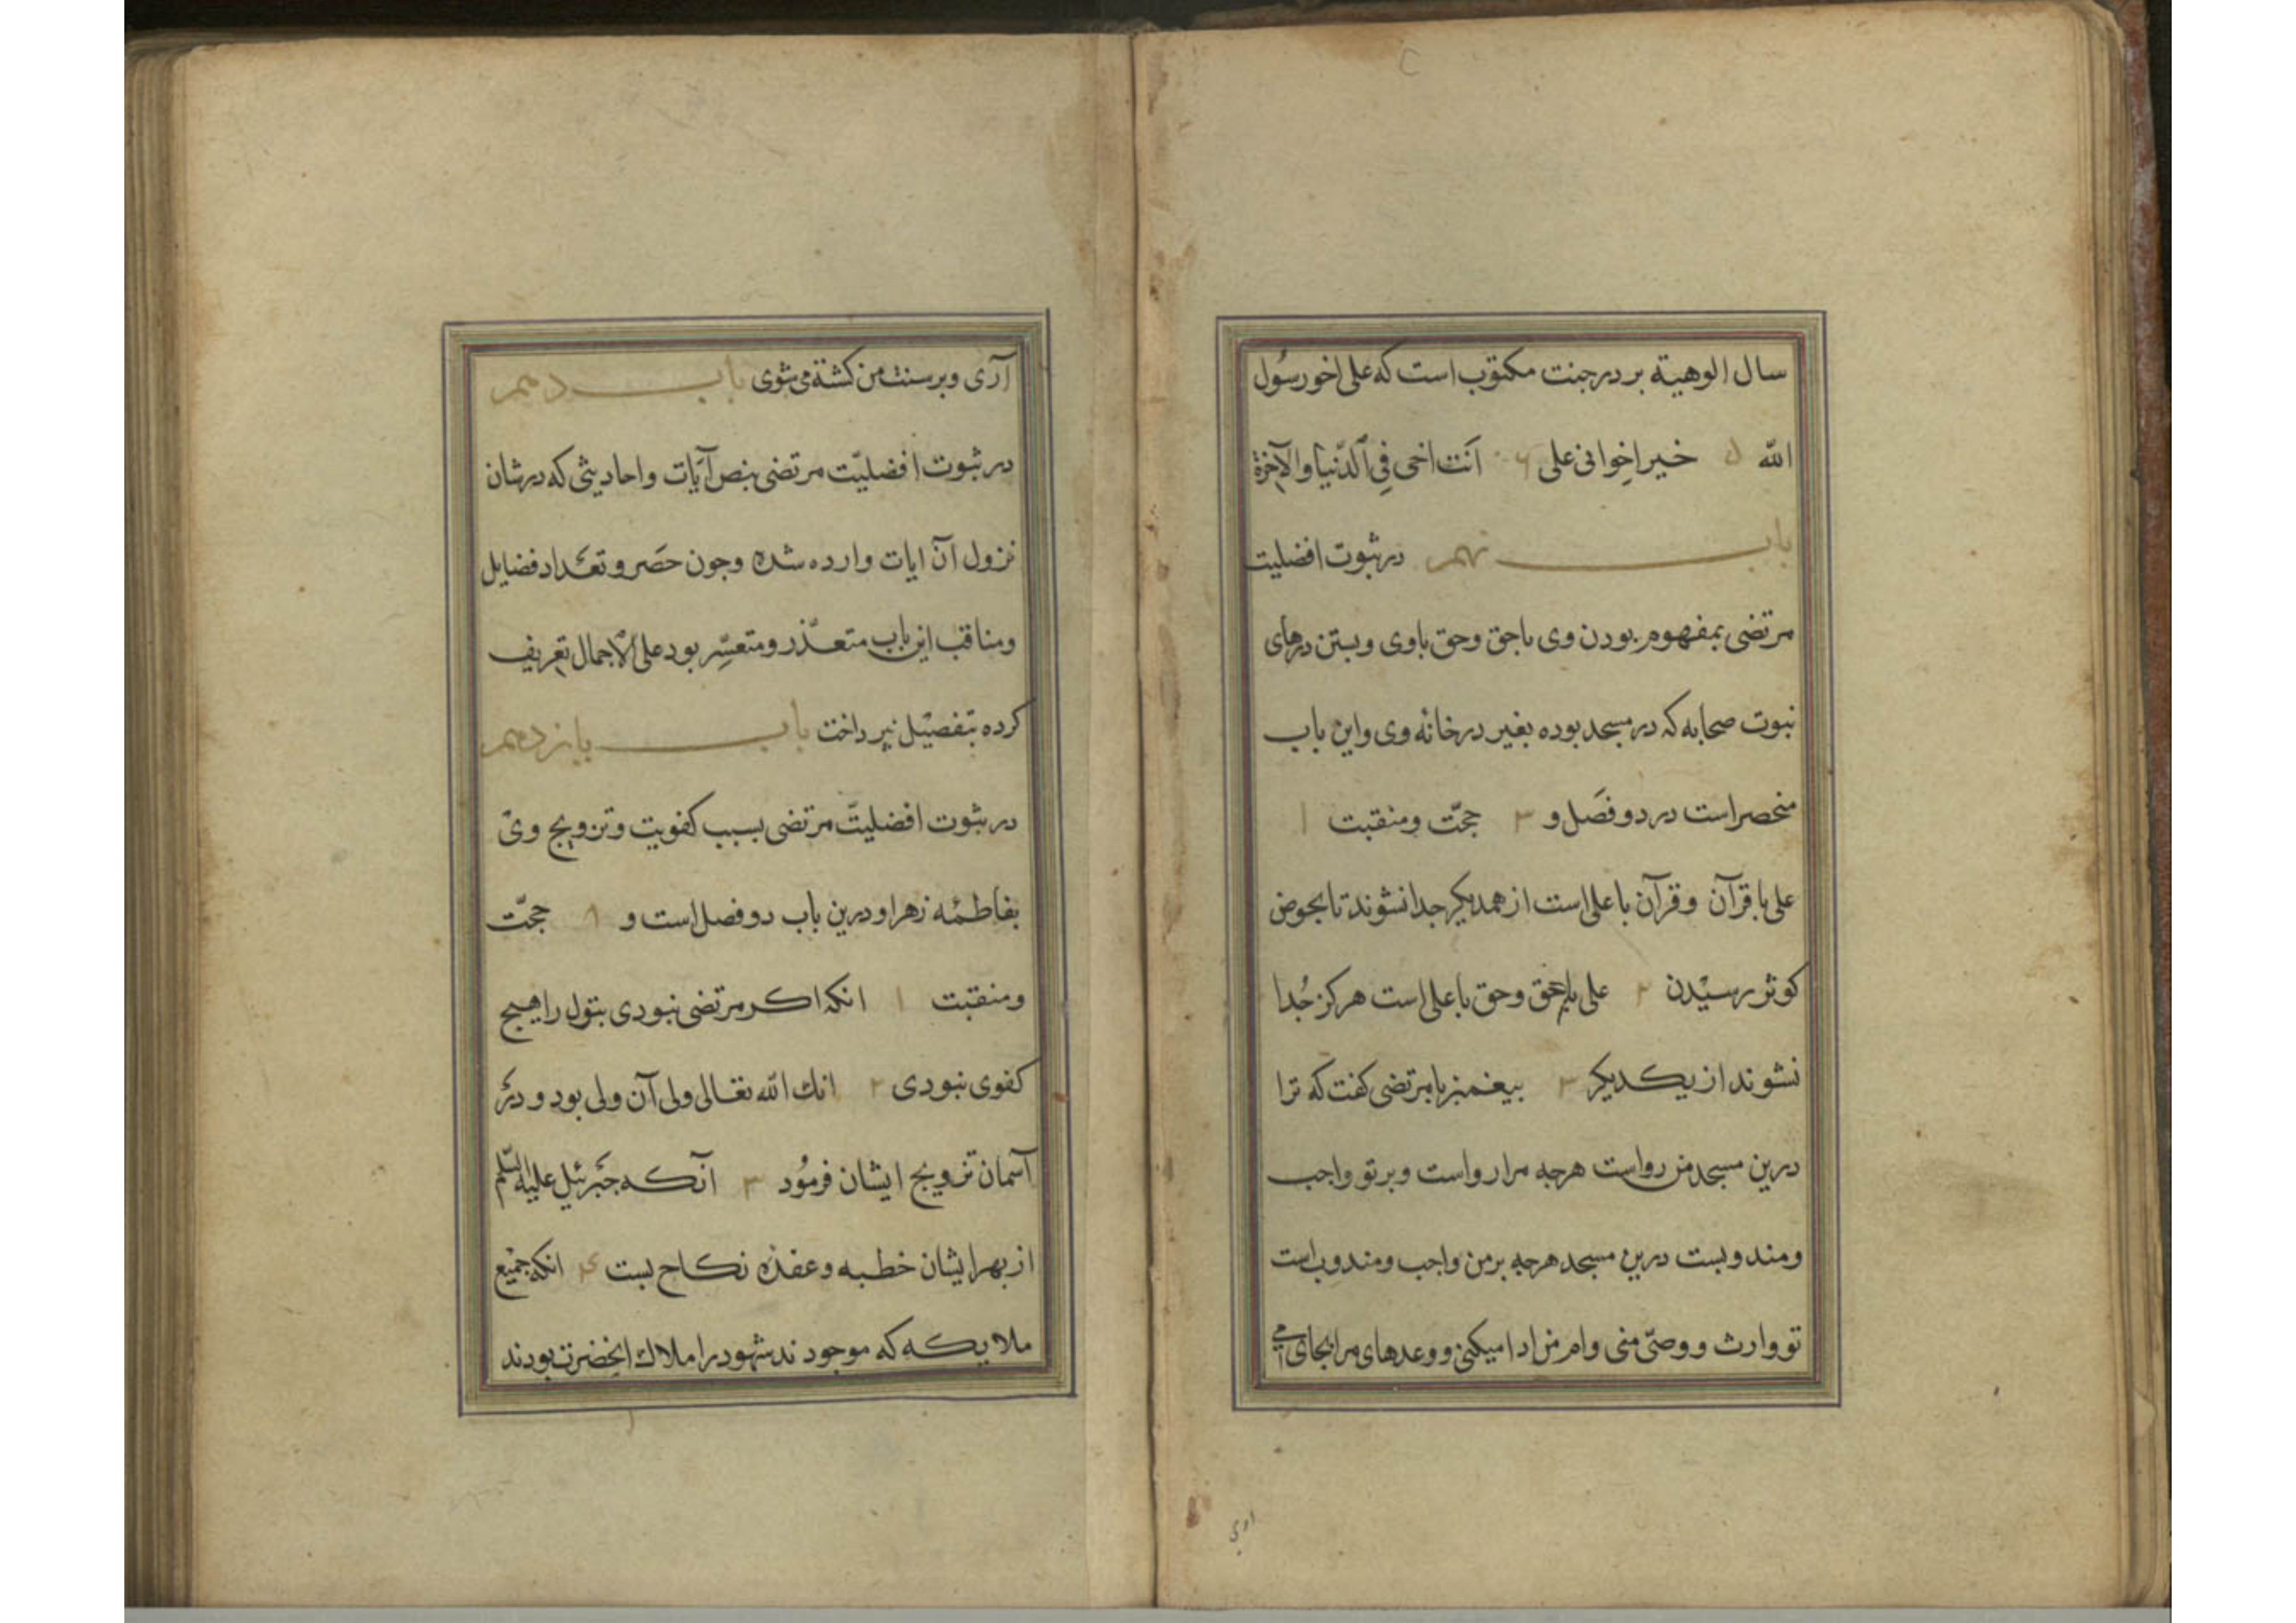 سال الوهیة بر در جنت مکتوب است که علی اخو رسُول
الله ۵ خیر اخوانی علی ۶ اَنت اخی فِی الدّنیا والآخرة
باب نهم در ثبوت افضلیت
مرتضی بمفهوم بودن وی باحق وحق باوی وبستن درهای
نبوت صحابه که در مسجد بوده بغیر در خانه وی واین باب
منحصر است در دو فصَل و ۳ حجّت ومنقبت ۱
علی با قرآن وقرآن با علی است از همدیکر جدا نشوند تا بحوض
کوثر رسیدن ۲ علی باحق وحق با علی است هرکز جُدا
نشوند از یکدیکر ۳ پیغمبر با مرتضی کفت که ترا
درین مسجد من رواست هرجه مرا رواست وبر تو واجب
ومندوبست درین مسجد هرجه بر من واجب ومندوب است
تو وارث ووصّی منی وام من ادا میکنی ووعدهای مرا بجای می
اری
آری وبر سنت من کشته می شوی باب دهم
در ثبوت افضلیّت مرتضی بنص آیات واحادیثی که در شان
نزول آن ایات وارده شده وجون حصَر وتعَداد فضایل
ومناقب این باب متعذّر ومتعسِّر بود علی الاجمال تعریف
کرده بتفصیل نپرداخت باب یازدهم
در ثبوت افضلیتّ مرتضی بسبب کفویت وتزویج وی
بفاطمه زهرا ودرین باب دو فصل است و ۸ حجّت
ومنقبت ۱ انکه اکر مرتضی نبودی بتول را هیج
کفوی نبودی ۲ انك الله تعالی ولی آن ولی بود ودر
آسمان تزویج ایشان فرمُود ۳ آنکه جبَرئیل علیه السّلم
از بهر ایشان خطبه وعقده نکاح بست ۴ انکه جمیع
ملایکه که موجودند شهود را ملاك انحضرت بودند